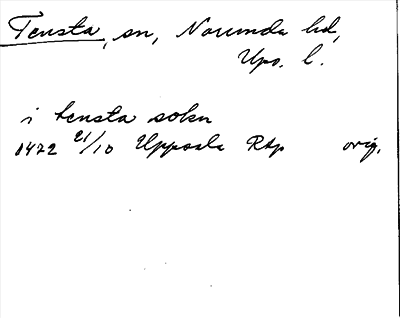 Tensta, sn, Norunda hd,
Upps. l.
i tensta sokn
1472 21/10 Uppsala RAp orig.